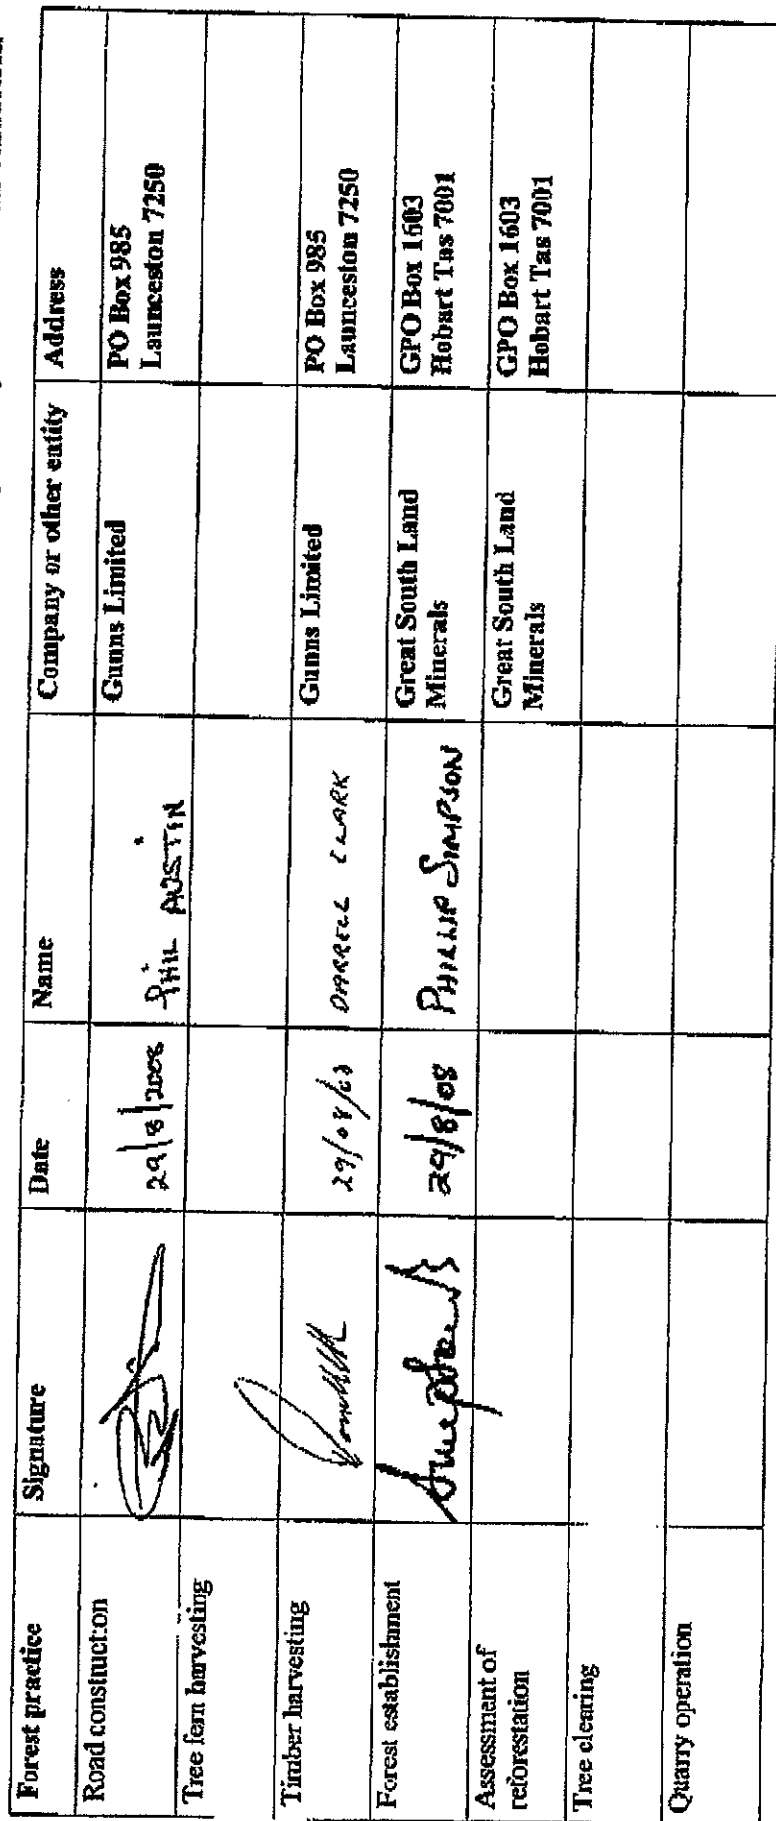 Forest practice Signature Date Name Company or other entity Address
Road construction 29/8/2008 PHIL AUSTIN Gunns Limited PO Box 985
Launceston 7250
Tree fern harvesting
Timber harvesting 29/08/08 DARRELL CLARK Gunns Limited PO Box 985
Launceston 7250
Forest establishment 29/8/08 PHILLIP SIMPSON Great South Land GPO Box 1603
Minerals Hobart Tas 7001
Assessment of Great South Land GPO Box 1603
reforestation Minerals Hobart Tas 7001
Tree clearing
Quarry operation